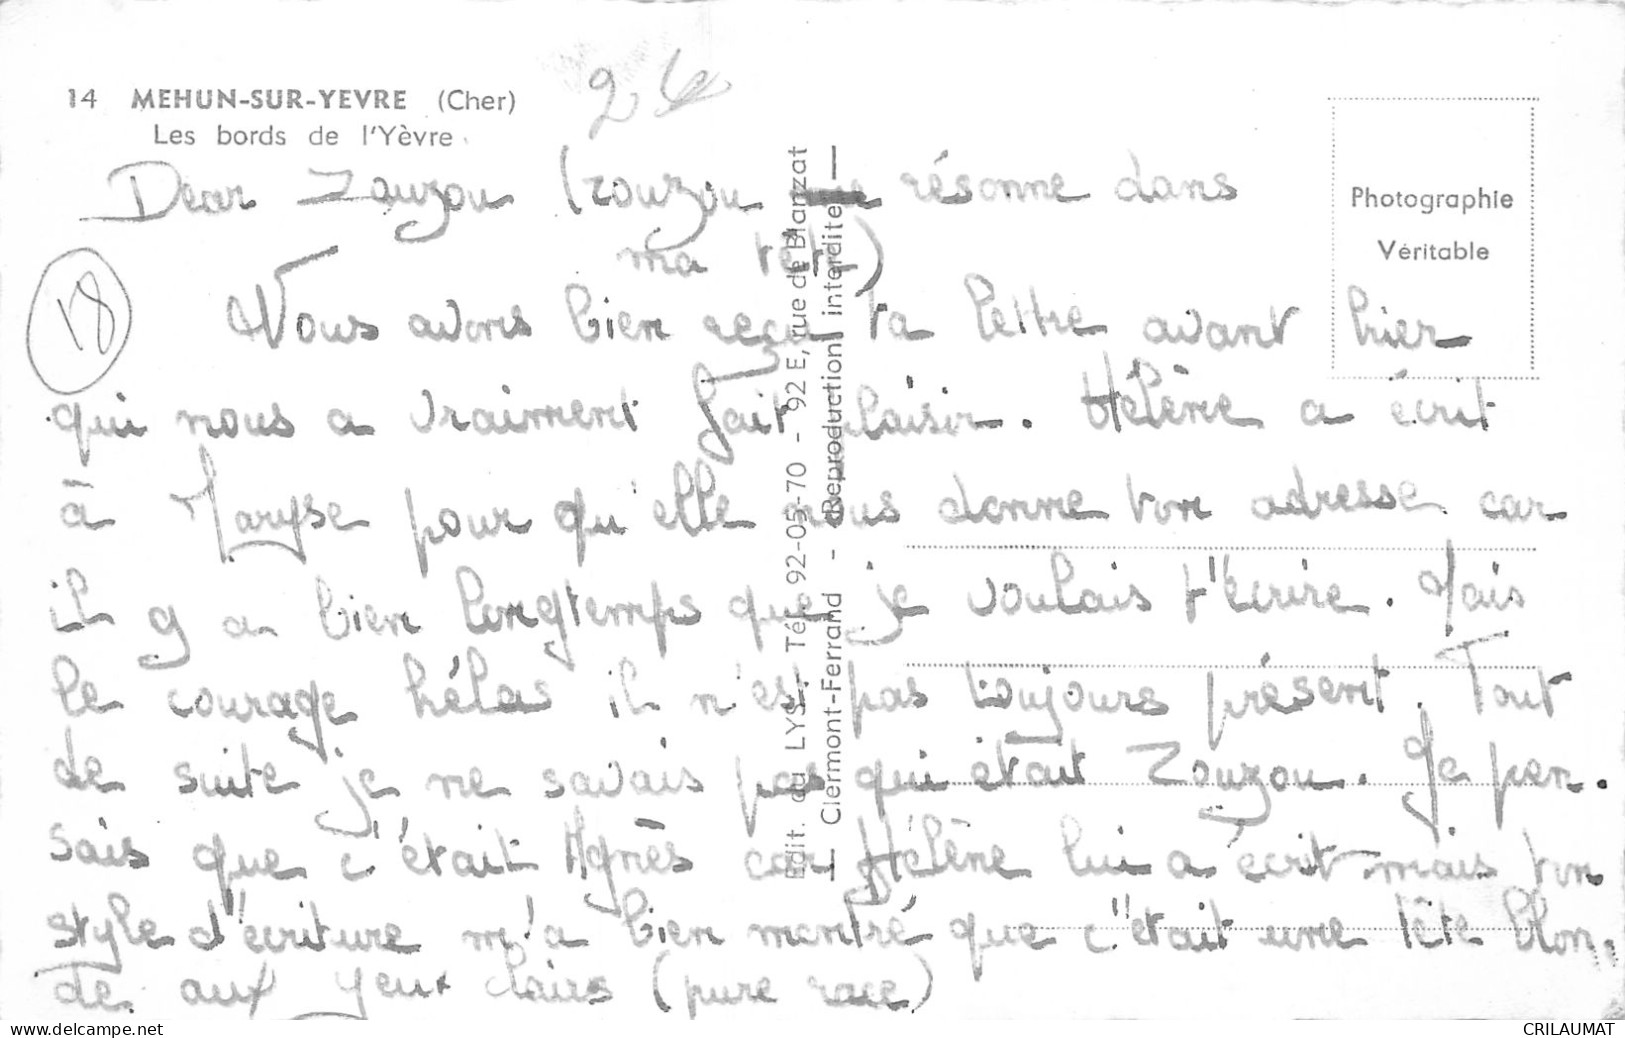 14 MEHUN-SUR-YEVRE (Cher)
Les bords de l'Yèvre
Photographie
Véritable
18
Dear Zouzou (zouzou résonne dans
ma tête)
Nous avons bien reçu ta lettre avant hier
qui nous a vraiment fait plaisir. Hélène a écrit
à Maryse pour qu'elle nous donne ton adresse car
il y a bien longtemps que je voulais t'écrire. Mais
le courage hélas il n'est pas toujours présent. Tout
de suite je ne savais pas qui était Zouzou. Je pen.
sais que c'était Agnès car Hélène lui a écrit mais ton
style d'écriture m'a bien montré que c'était une tête blon.
de aux yeux clairs (pure race)
Edit. du LYS - Tél. 92-05-70 - 92 E, rue de Blanzat
— Clermont-Ferrand - (Reproduction interdite) —
CRILAUMAT
www.delcampe.net